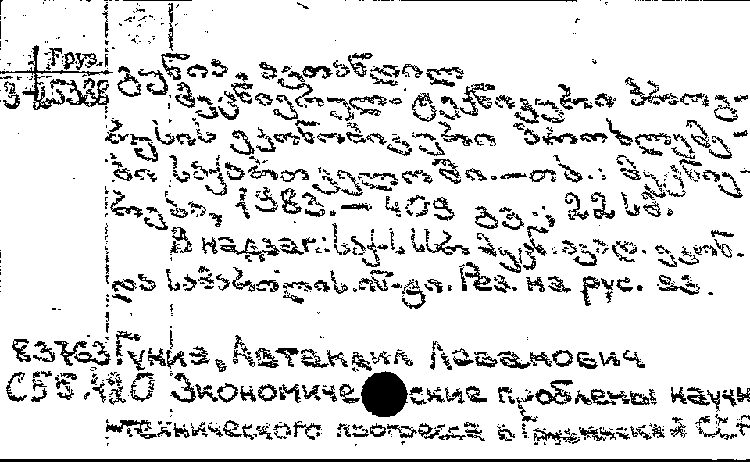 Груз.
3-15388 გუნია, ავთანდილ
მეცნიერულ-ტექნიკური პროგ-
რესის ეკონომიკური პრობლემე-
ბი საქართველოში.—თბ.: მეცნიე-
რება, 1983.— 409 გვ.; 22 სმ.
В надзаг.: საქ-ს სსრ მეცნ. აკად. ეკონ.
და სამართლის ინ-ტი. Рез. на рус. яз.
83763 Гуния, Автандил Леванович
С55.420 Экономические проблемы научн
технического прогресса в Грузинской ССР